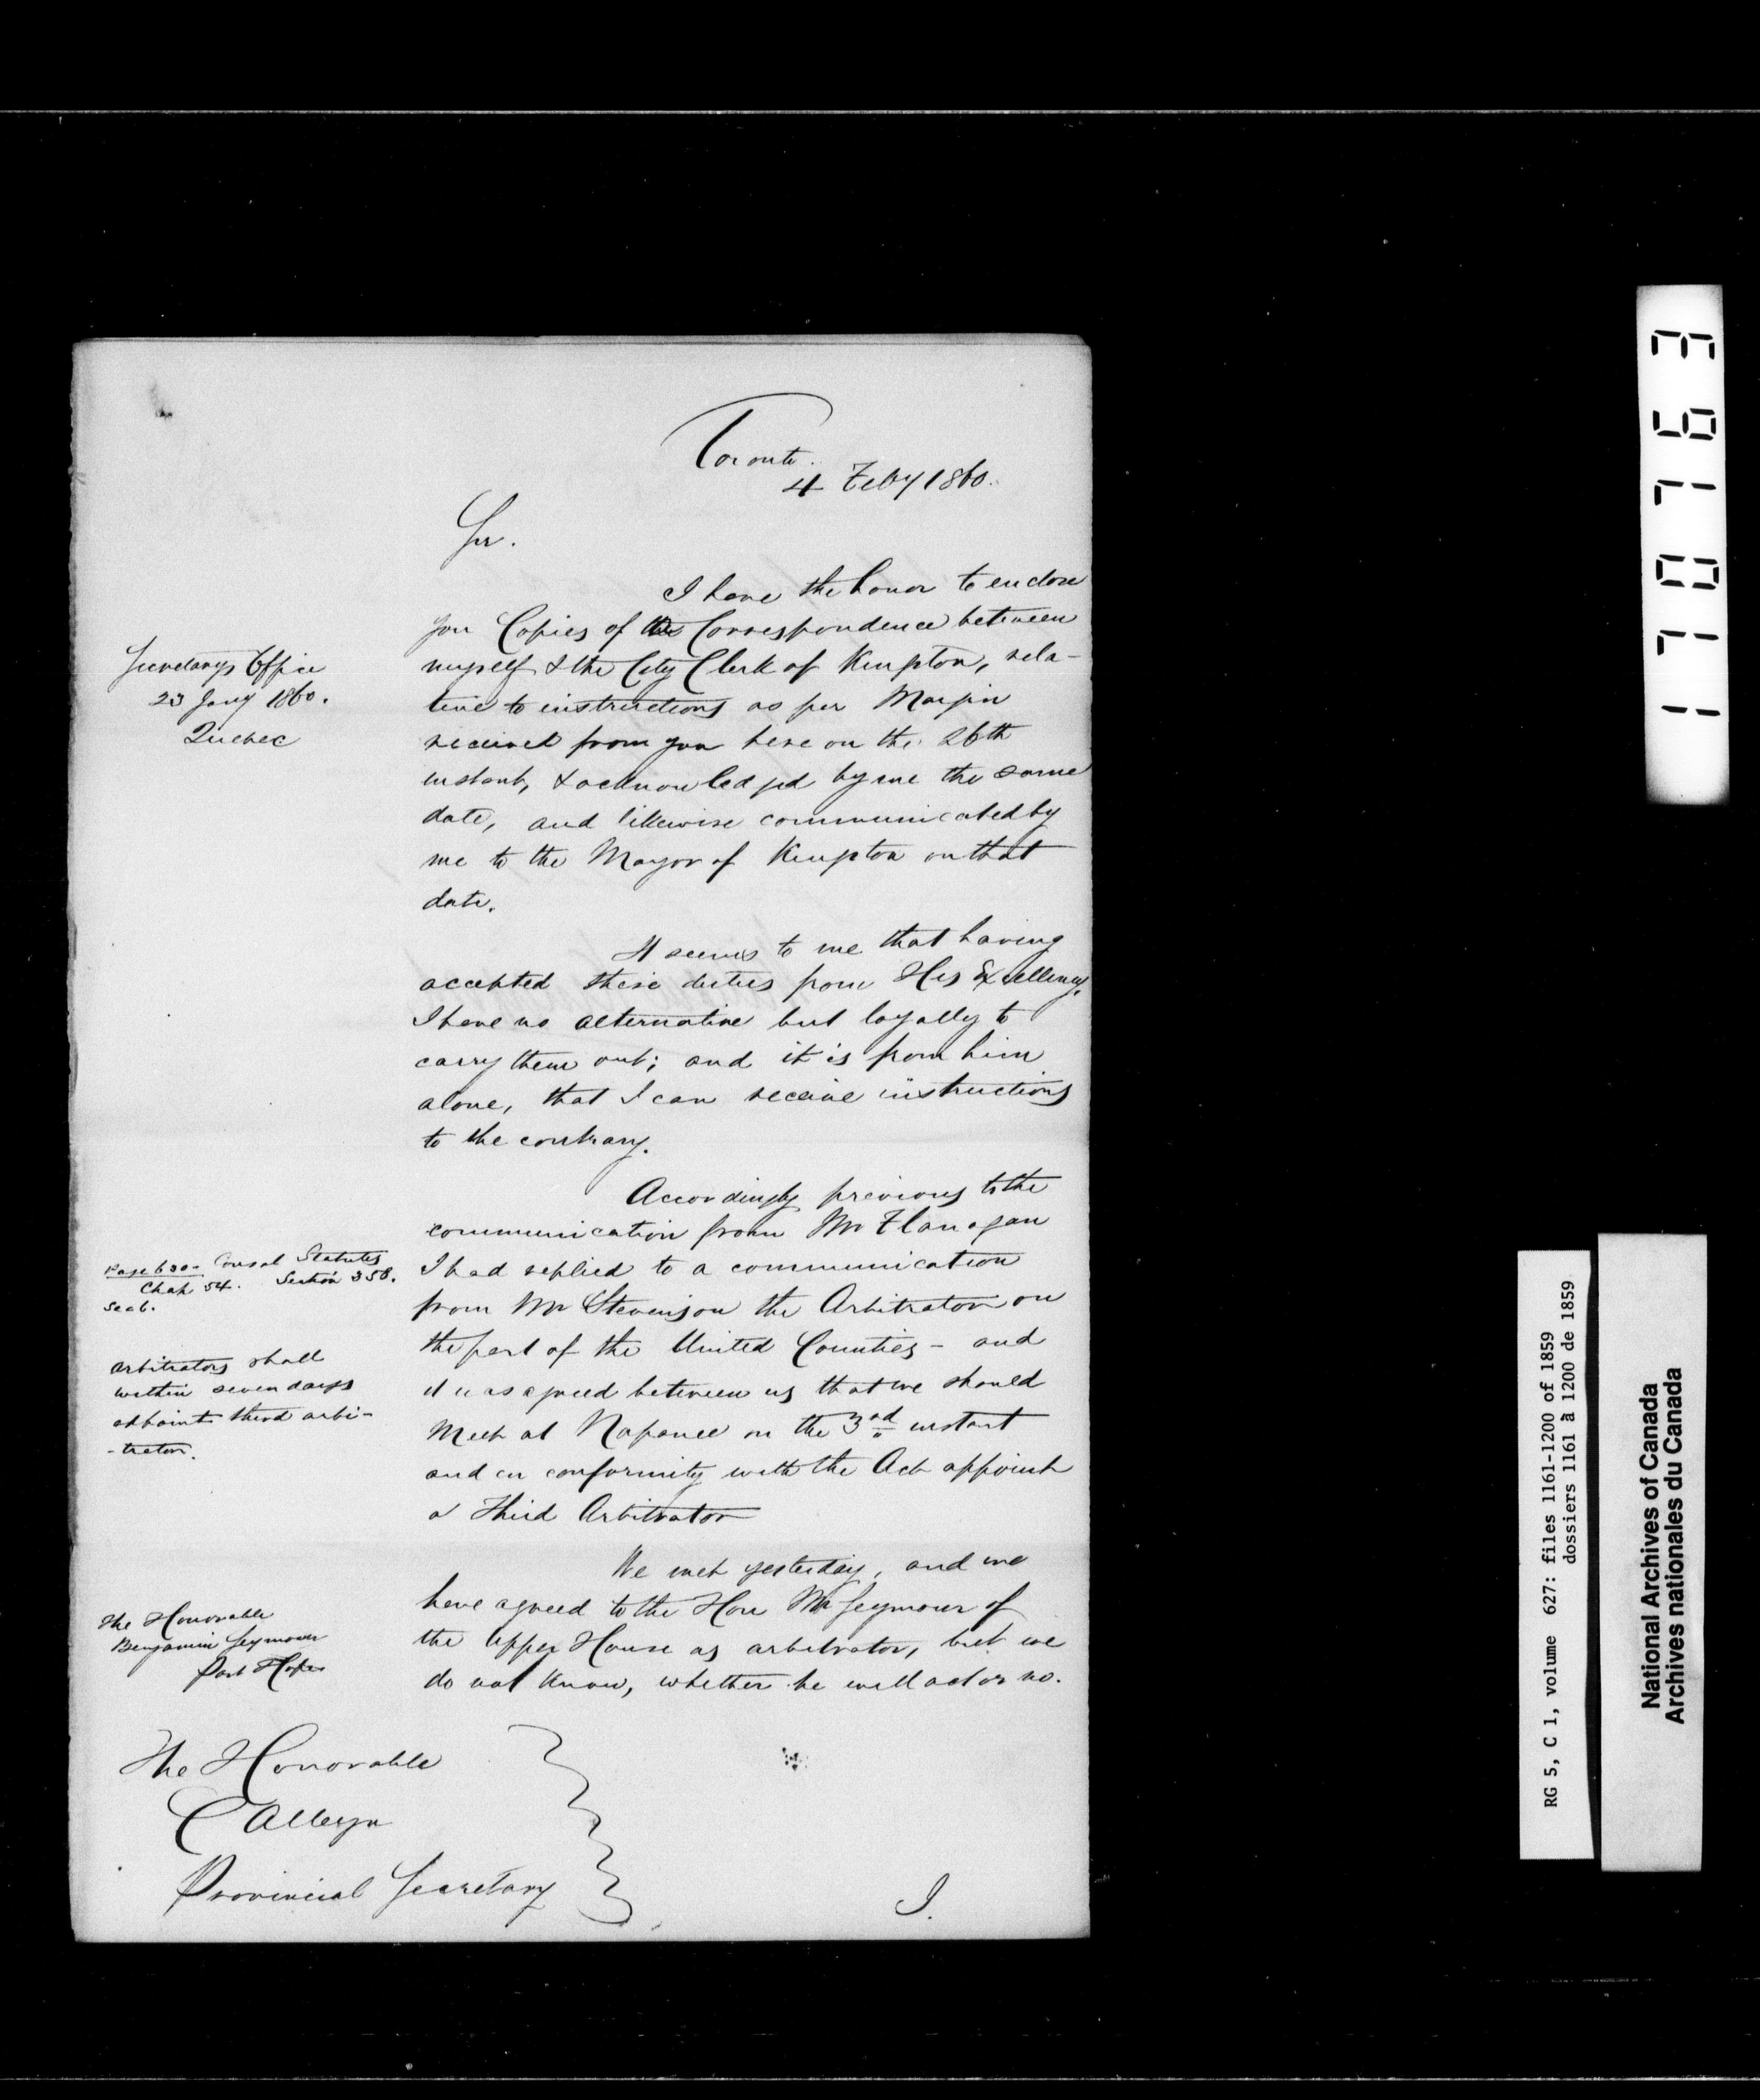 Toronto.
4 Feby 1860.
Sir.
I have the honor to enclose
you Copies of the Correspondence between
myself & the City Clerk of Kingston, rela-
tive to instructions as per Margin
received from you here on the 26th
instant, & acknowledged by me the same
date, and likewise communicated by
me to the Mayor of Kingston on that
date.
Secretary's Office
23 Jany 1860.
Quebec
It seems to me that having
accepted these duties from His Excellency,
I have no alternative but loyally to
carry them out; and it is from him
alone, that I can receive instructions
to the contrary.
Accordingly previous to the
communication from Mr Flanagan
I had replied to a communication
from Mr Stevenson the Arbitrator on
the part of the United Counties - and
it was agreed between us that we should
Meet at Napanee on the 3rd instant
and in conformity with the Act appoint
a Third Arbitrator
Page 630 - Consol Statutes
Chap 54. Section 358.
Arbitrators shall
within seven days
appoint third arbi-
-trator.
We met yesterday, and we
have agreed to the Hon Mr Seymour of
the Upper House as arbitrator, but we
do not know, whether he will act or no.
The Honorable
Benjamin Seymour
Port Hope
The Honorable
C Alleyn
Provincial Secretary
I.
1 1 7 0 7 6 3
RG 5, C 1, volume 627: files 1161-1200 of 1859
dossiers 1161 à 1200 de 1859
National Archives of Canada
Archives nationales du Canada